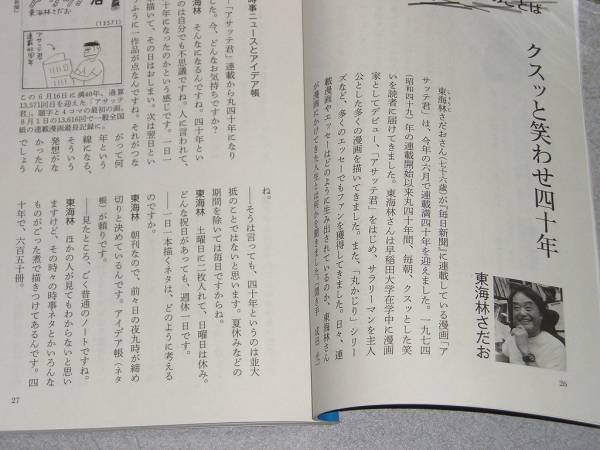 ことば
クスッと笑わせ四十年
東海林さだお
しょうじ
東海林さだおさん(七十六歳)が『毎日新聞』に連載している漫画「ア
サッテ君」は、今年の六月で連載満四十年を迎えました。一九七四
(昭和四十九)年の連載開始以来丸四十年間、毎朝、クスッとした笑
いを読者に届けてきました。東海林さんは早稲田大学在学中に漫画
家としてデビュー、「アサッテ君」をはじめ、サラリーマンを主人
公とした多くの漫画を描いてきました。また、「丸かじり」シリー
ズなど、多くのエッセーでもファンを獲得してきました。日々、連
載漫画やエッセーはどのように生み出されているのか、東海林さん
が漫画にかけてきた人生とは何かを聞きました。
26
東海林さだお
(13571)
アサッテ君
この6月16日に満40年、通算
13,571回目を迎えた「アサッテ
君」。題字と4コマの最初の画。
8月1日の13,616回で一般全国
紙の連載漫画最長記録に。
時事ニュースとアイデア帳
「アサッテ君」連載から丸四十年になり
した。今、どんなお気持ちですか?
海林 そんなになるんですね。四十年とい
のは自分でも不思議ですね。人に言われて、
十年になったのかという感じです。一日一
描いて、その日はおしまい。次は翌日とい
ふうに一作品が点なんですね。それがつな
がって何
年という
線になる、
そういう
発想がな
かったん
でしょう
ね。
――そうは言っても、四十年というのは並大
抵のことではないと思います。夏休みなどの
期間を除いては毎日ですからね。
東海林 土曜日に二枚入れて、日曜日は休み。
どんな祝日があっても、週休一日です。
――一日一本描くネタは、どのように考える
のですか。
東海林 朝刊なので、前々日の夜九時が締め
切りと決めているんです。アイデア帳(ネタ
帳)が頼りです。
――見たところ、ごく普通のノートですね。
東海林 ほかの人が見てもわからないと思い
ますけど、その時々の時事ネタとかいろんな
ものがごった煮で描きつけてあるんです。四
十年で、六百五十冊。
27